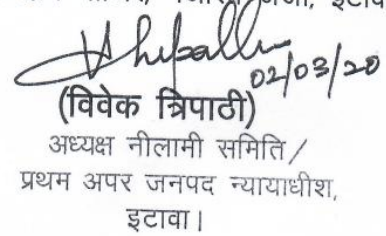 02/03/20
(विवेक त्रिपाठी)
अध्यक्ष नीलामी समिति/
प्रथम अपर जनपद न्यायाधीश,
इटावा।